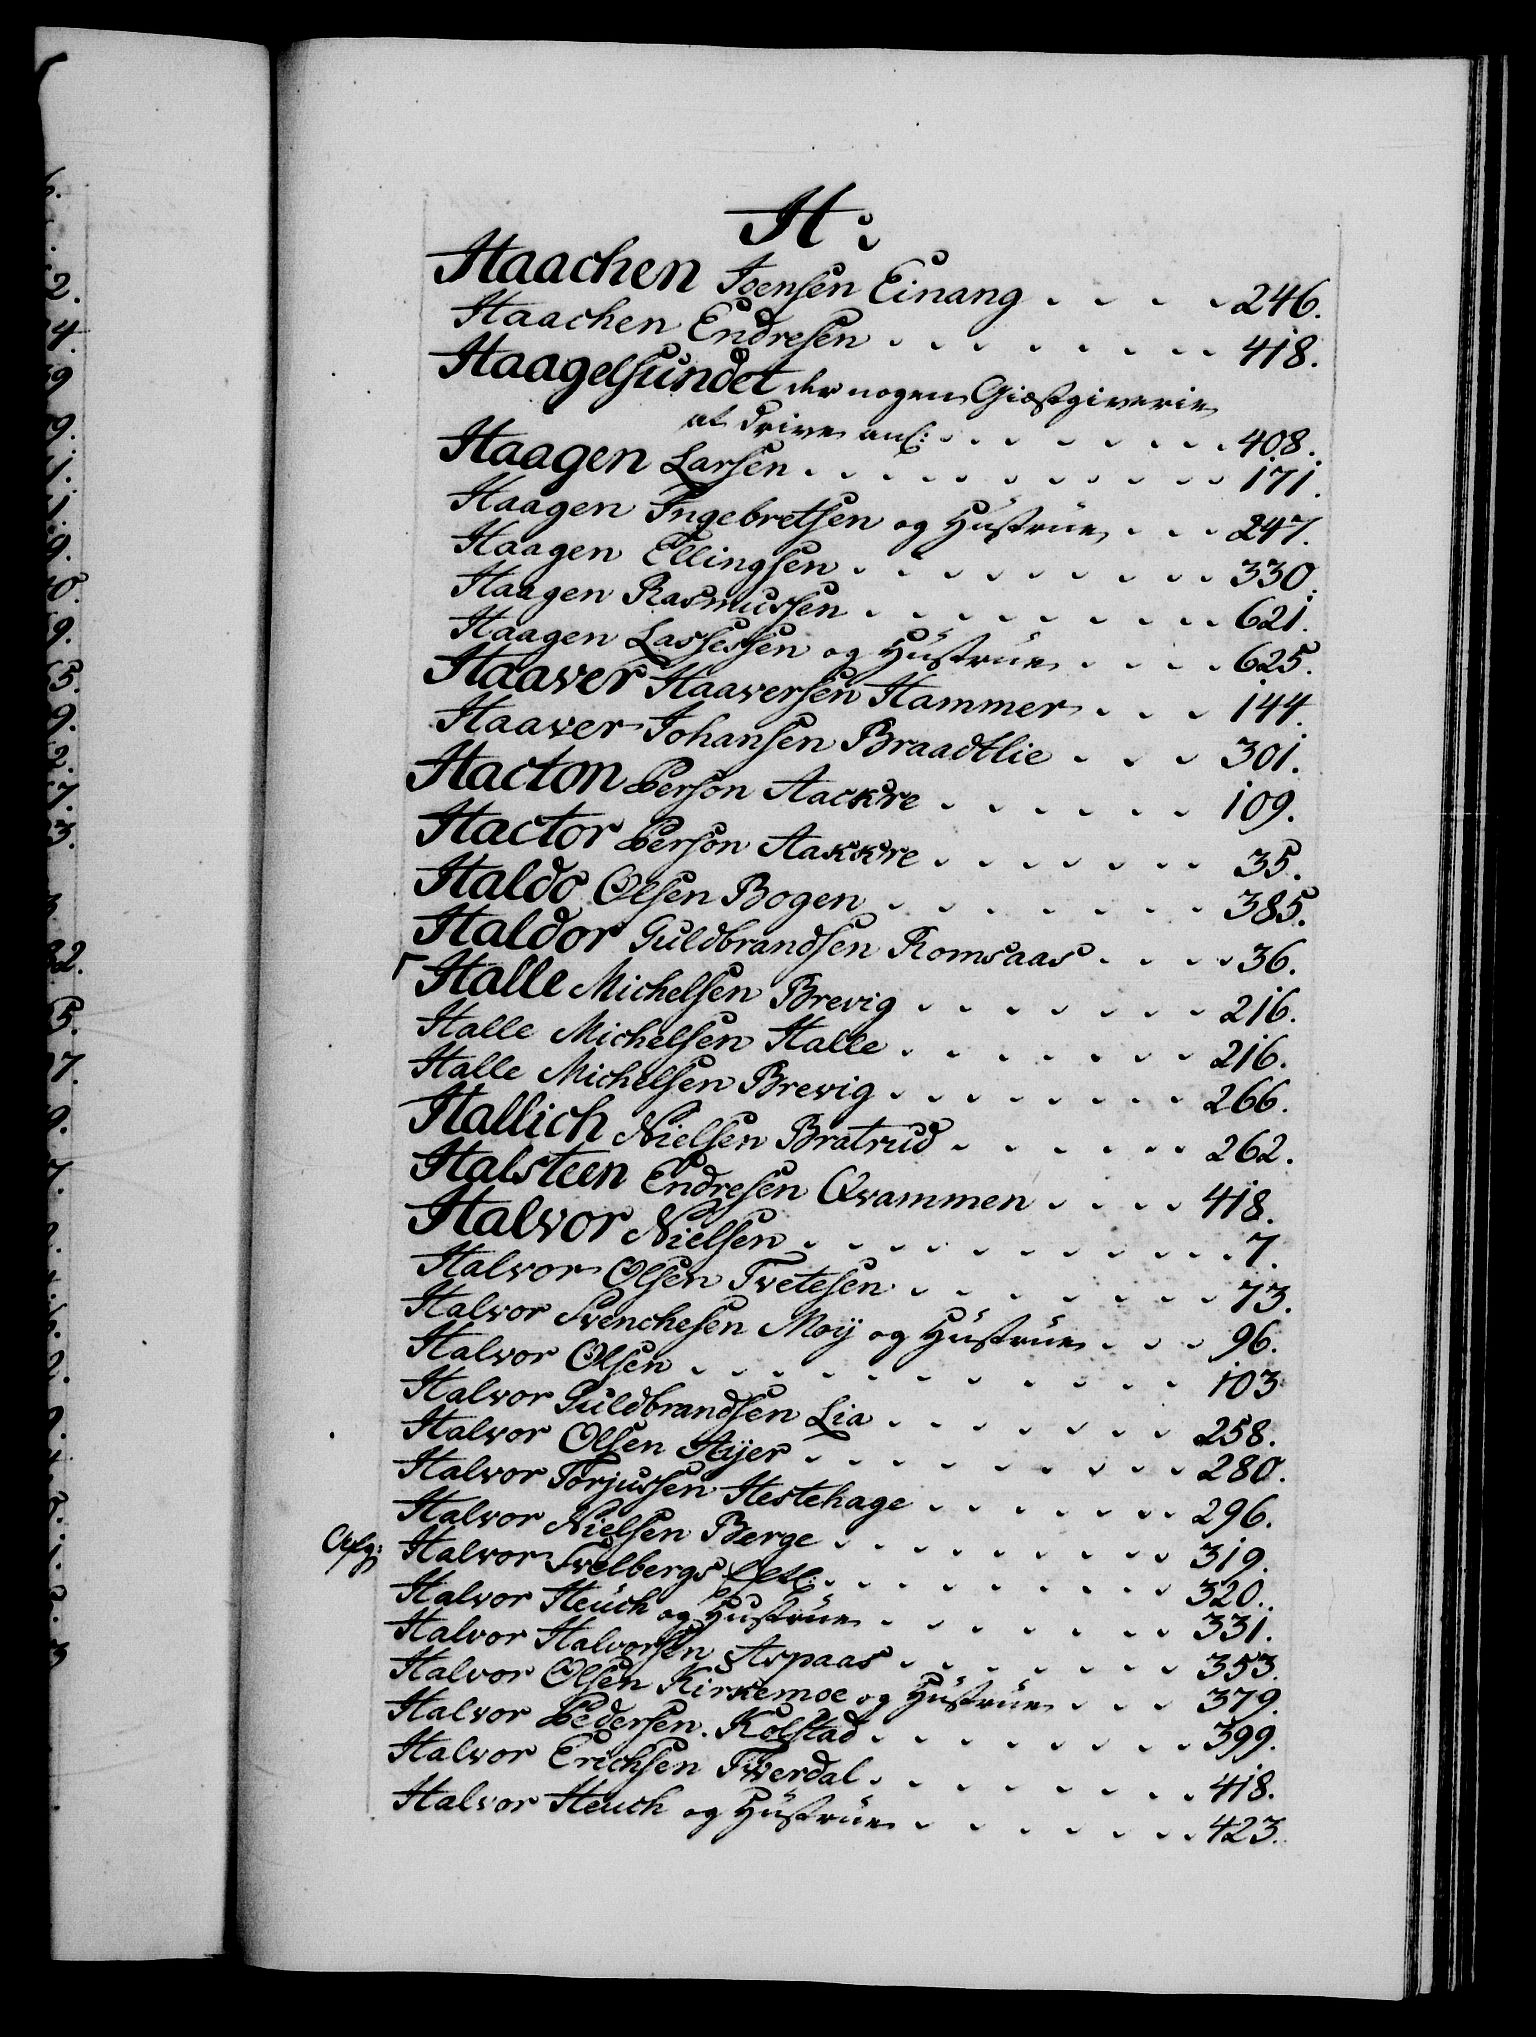 H:
Haachen Joensen Einang . . . . . 246.
Haachen Endresen . . . . . . . . 418.
Haagelsundet der nogen Giæstgiverie
at drive anl: . . . . . . . . 408.
Haagen Larsen . . . . . . . . . . . 171.
Haagen Ingebretsen og Hustrue . . . 247.
Haagen Ellingsen . . . . . . . . . 330.
Haagen Rasmussen . . . . . . . . . 621.
Haagen Lassessen og Hustrue . . . . 625.
Haaver Haaversen Hammer . . . 144.
Haaver Johansen Braadtlie . . . 301.
Hacton Person Aackre . . . . . . 109.
Hactor Person Aakkre . . . . . . . 35.
Haldo Olsen Bogen . . . . . . . . 385.
Haldor Guldbrandsen Romsaas . . . . 36.
Halle Michelsen Brevig . . . . . . . 216.
Halle Michelsen Halle . . . . . . . 216.
Halle Michelsen Brevig . . . . . . . . 266.
Hallich Nielsen Bratrud . . . . . . 262.
Halsteen Endresen Qvammen . . . . 418.
Halvor Nielsen . . . . . . . . . . . 7.
Halvor Olsen Tvetesen . . . . . . . . 73.
Halvor Svenchesen Moij og Hustrue . . . 96.
Halvor Olsen . . . . . . . . . . . . 103
Halvor Guldbrandsen Lia . . . . . . . 258.
Halvor Olsen Aijer . . . . . . . . . . 280.
Halvor Torjussen Hestehage . . . . . . . 296.
Halvor Nielsen Berge . . . . . . . . . 319.
Halvor Svelbergs . . . . . . . . . 320.
Halvor Heuch og Hustrue . . . . . . . 331.
Halvor Halvorsen Aspaas . . . . . . . 353.
Halvor Olsen Kirkemoe og Hustrue . . . 379.
Halvor Pedersen Kolstad . . . . . . . . 399.
Halvor Erichsen Tværdal . . . . . . . . 418.
Halvor Heuch og Hustrue . . . . . . . 423.